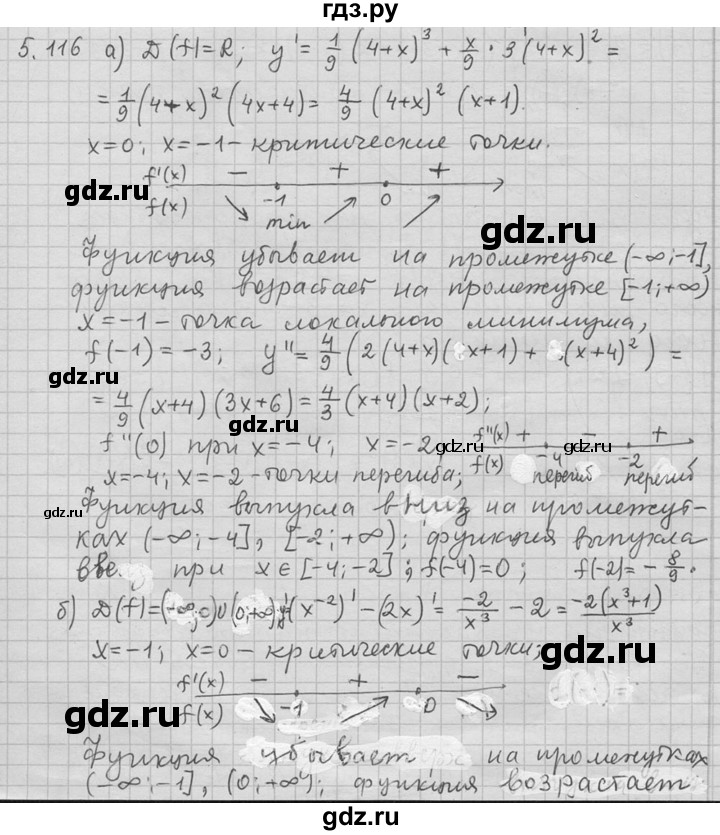 гдз.ру
5.116 а) D(f)=R; y' = 1/9 (4+x)^3 + x/9 · 3(4+x)^2 =
= 1/9 (4+x)^2 (4x+4) = 4/9 (4+x)^2 (x+1).
x=0; x=-1 - критические точки.
f'(x) − + +
gdz.ru
f(x) -1 0
min
gdz.ru
Функция убывает на промежутке (-∞;-1],
функция возрастает на промежутке [-1;+∞)
x=-1 - точка локального минимума,
f(-1) = -3; y''= 4/9 (2(4+x)(x+1) + (x+4)^2) =
gdz.ru
= 4/9 (x+4)(3x+6) = 4/3 (x+4)(x+2);
f''(0) при x=-4; x=-2 f''(x) + − +
gdz.ru gdz.ru
f(x) -4 -2
x=-4; x=-2 - точки перегиба; перегиб перегиб
Функция выпукла вниз на промежут-
ках (-∞;-4], [-2;+∞); функция выпукла
при x∈[-4;-2]; f(-4)=0; f(-2)=-8/9.
gdz.ru
б) D(f)=(-∞;0)∪(0;+∞); y'(x^-2)' - (2x)' = -2/x^3 - 2 = -2(x^3+1)/x^3
x=-1; x=0 - критические точки;
gdz.ru
f'(x) − + −
f(x) -1 0
gdz.ru
Функция убывает на промежутках
(-∞;-1], (0;+∞); функция возрастает
gdz.ru
gdz.ru